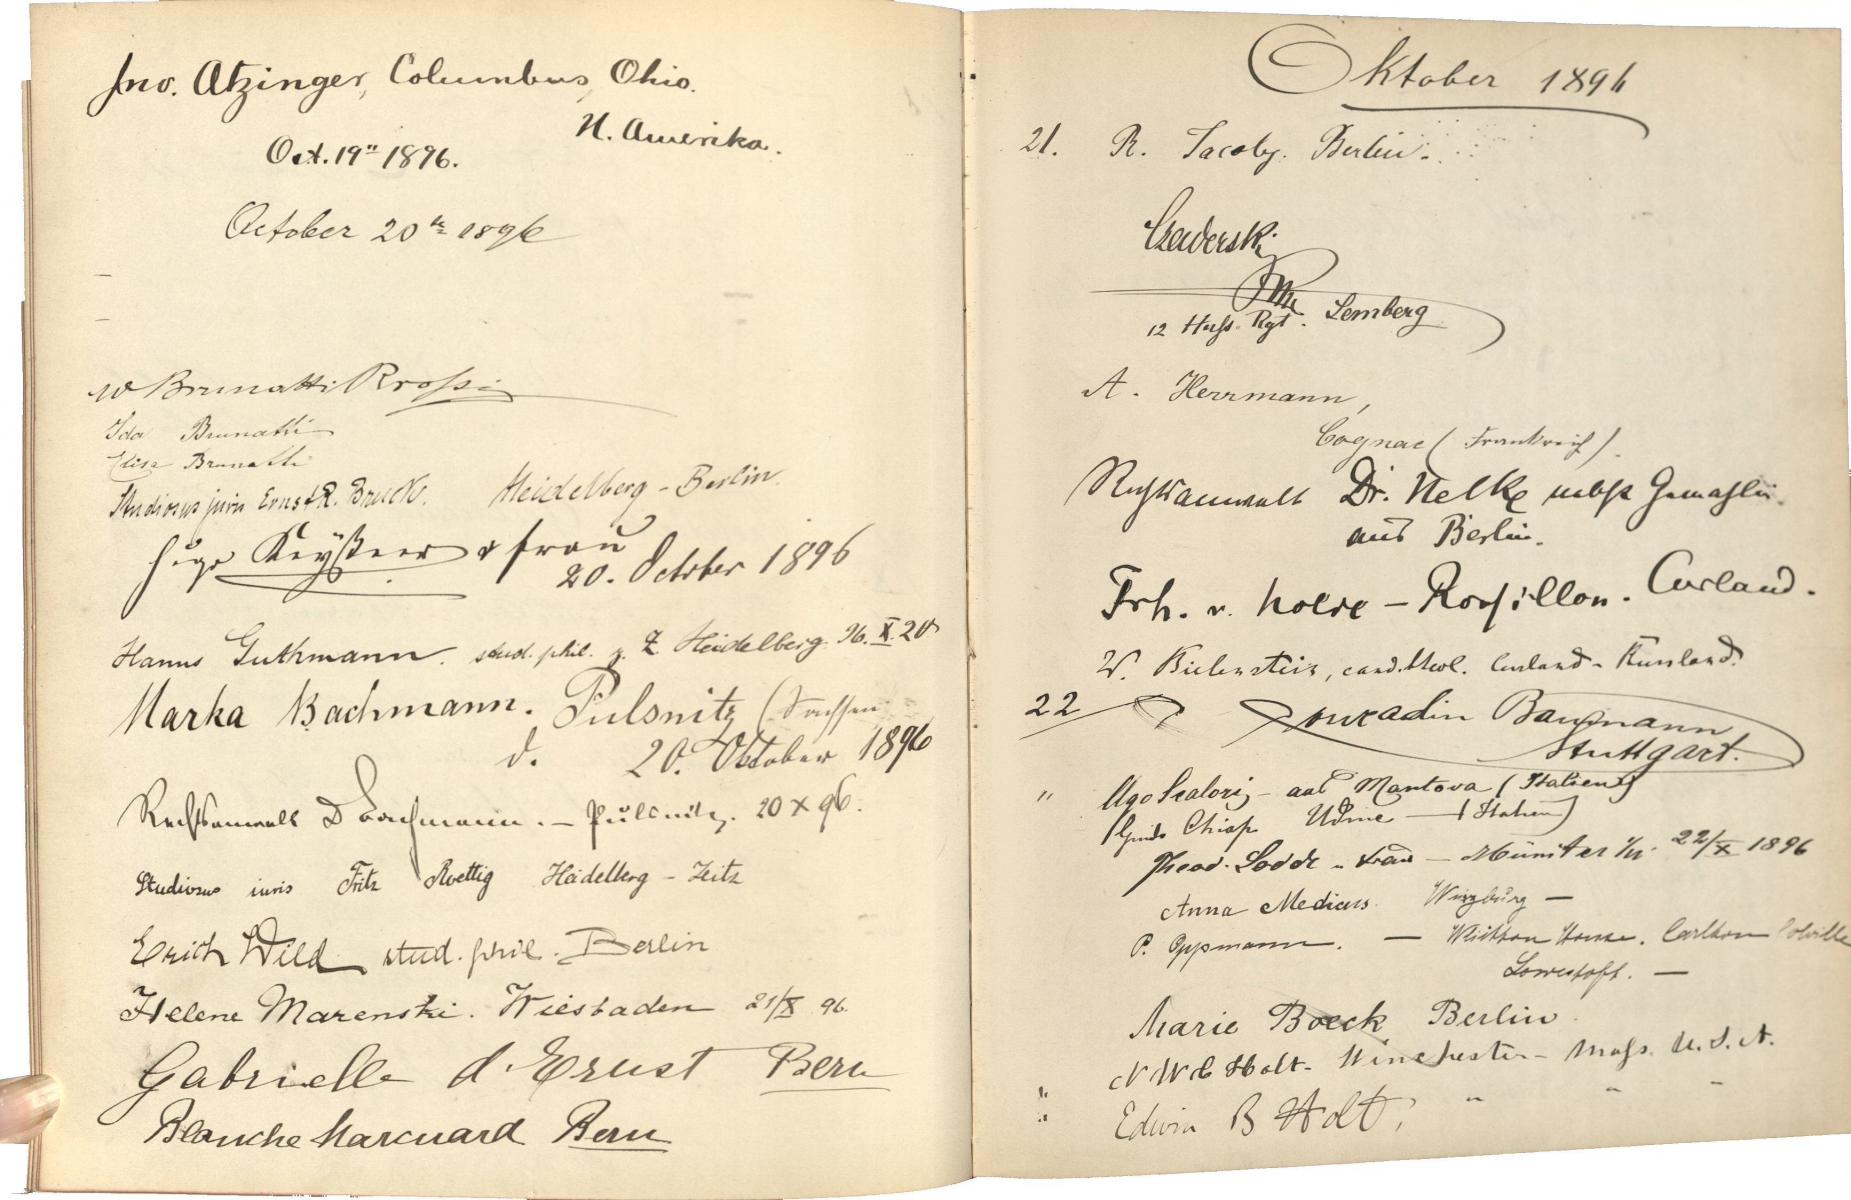 Jno. Atzinger, Columbus, Ohio.
N. Amerika.
Oct. 19" 1896.
October 20th 1896
W Brunatti Rrossi
Ida Brunatti
Elisa Brunatti
Studiosus juris Ernst R. Bruck. Heidelberg - Berlin.
Hugo Keyßner & Frau
20. October 1896
Hanns Guthmann. stud. phil. z. Z Heidelberg 96. X. 20
Marka Bachmann. Pulsnitz (Sachsen
d. 20. Oktober 1896
Rechtsanwalt Dr Bachmann. - Pulsnitz. 20 X 96.
Studiosus iuris Fritz Roettig Heidelberg - Zeitz
Erich Wild stud. phil. Berlin
Helene Marenski. Wiesbaden 21/X 96.
Gabrielle d'Ernst Bern
Blanche Marcuard Bern
Oktober 1896
21. R. Jacoby. Berlin.
12 Huss. Rgt. Lemberg
A. Herrmann,
Cognac (Frankreich).
Rechtsanwalt Dr. Nelke nebst Gemahlin
aus Berlin.
Frh. v. Kurland.
W. Bielenstein, cand. theol. Curland - Russland.
22 Conradin Baumann
Stuttgart.
" Ugo Scalori - aus Mantova (Italien)
Guido Chiap Udine - (Italien)
Theod. Lodde u. Frau - Münster i/W. 22/X 1896
Anna Medicus. Würzburg -
P. Oppmann. - House. Carlton Colville
Lowestoft. -
Marie Boeck Berlin.
N W C Holt - Winchester - Mass. U.S.A.
Edwin B Holt, " " "